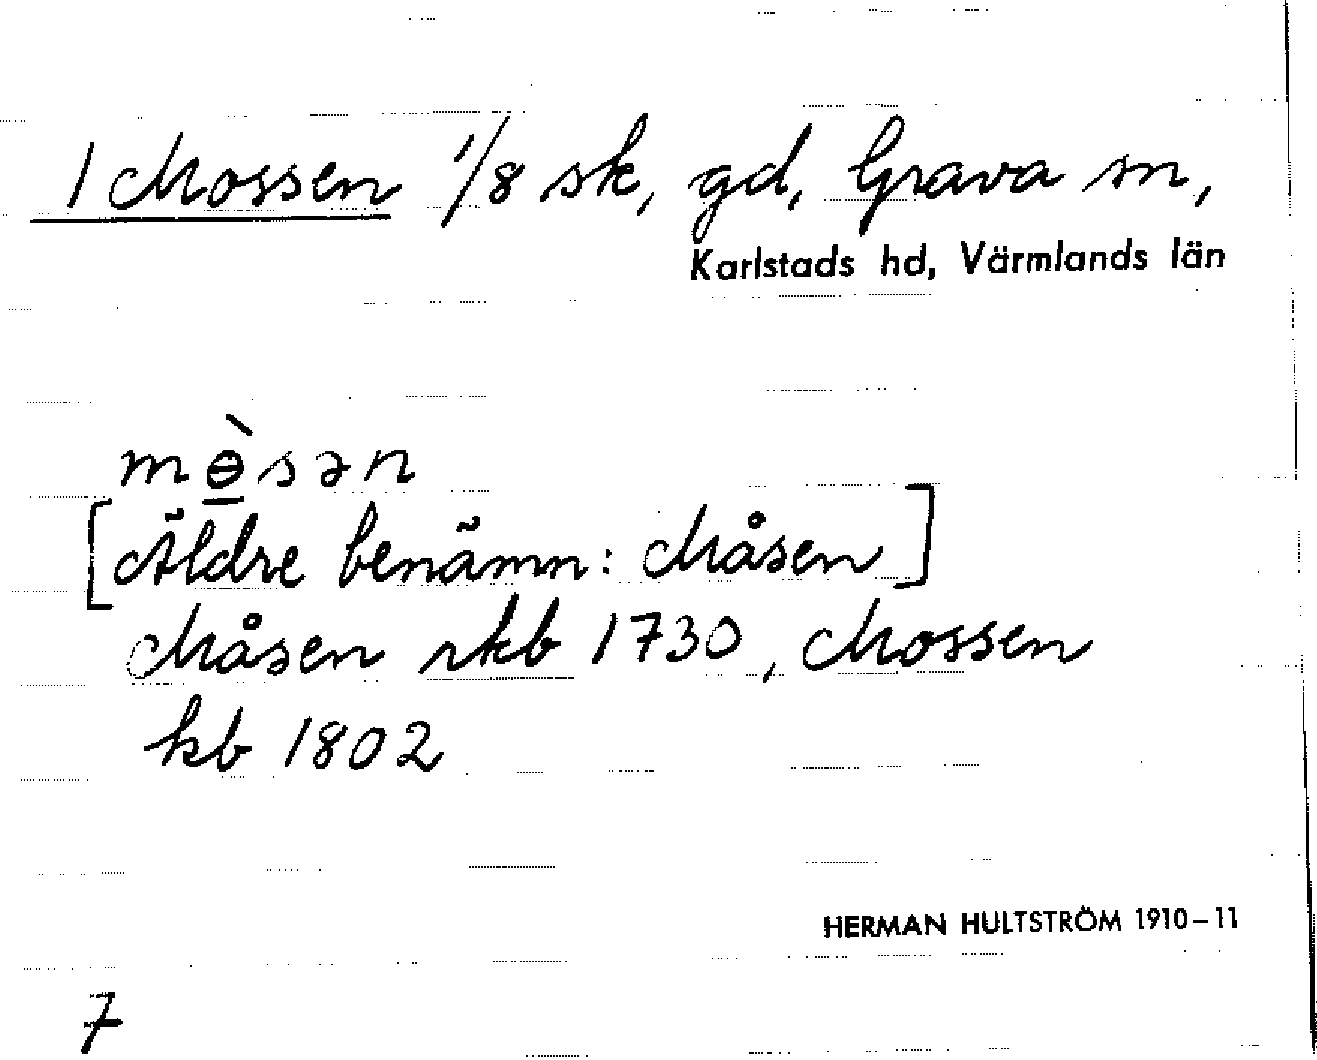 1 Mossen 1/8 sk, gd, Grava sn,
Karlstads hd, Värmlands län
mɵ̲̀sən
[Äldre benämn: Måsen]
Måsen rkb 1730, Mossen
kb 1802
HERMAN HULTSTRÖM 1910-11
7